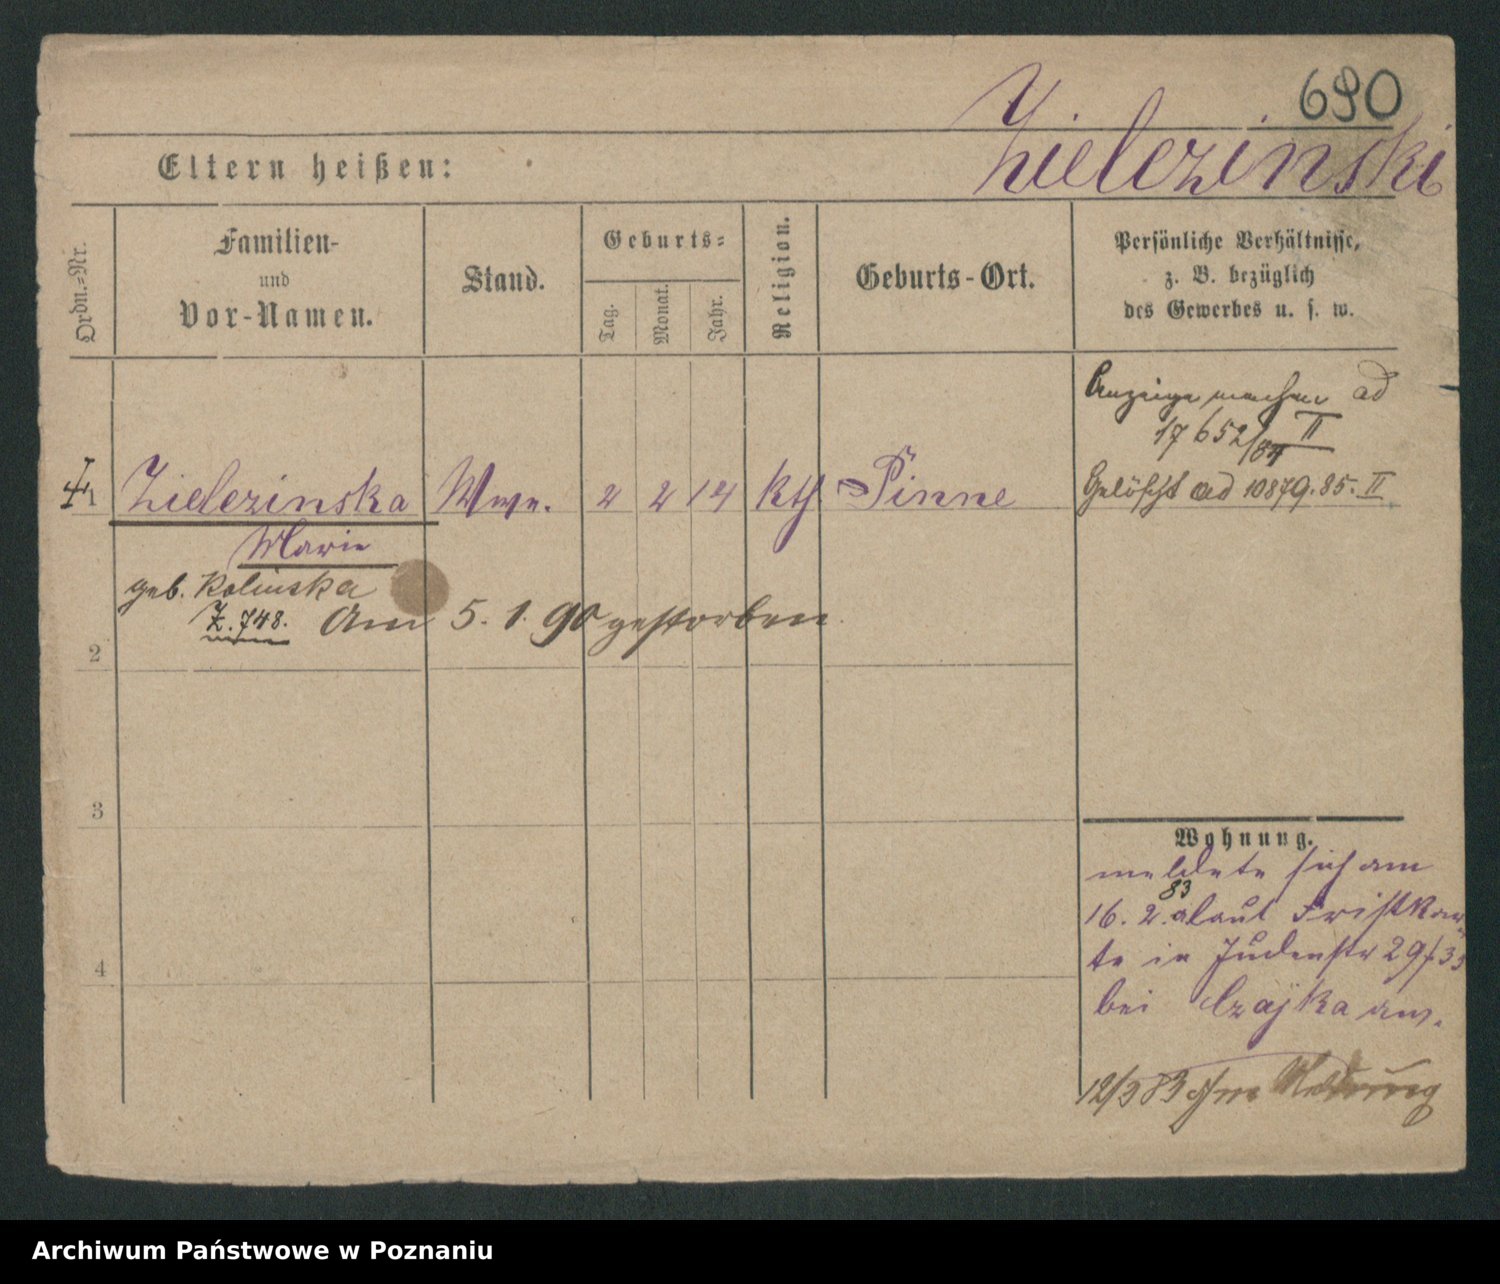 690
Zielezinski
Eltern heißen:
Ordn.-Nr.
Familien-
und
Vor-Namen.
Stand.
Geburts-
Tag.
Monat.
Jahr.
Religion.
Geburts-Ort.
Persönliche Verhältnisse,
z. B. bezüglich
des Gewerbes u. s. w.
Anzeige machen ad
17652/84 II
Gelöscht ad 10879.85. II
1 Zielezinska Wwe. 2 2 14 kth Pinne
Marie
geb. Kolinska
Z. 748. Am 5. 1. 90 gestorben
2
3
4
Wohnung.
meldete sich am
16. 2. 83 laut Fristkar-
te in Judenstr 29/33
bei Czajka an.
12/3 83 Meldung
Archiwum Państwowe w Poznaniu